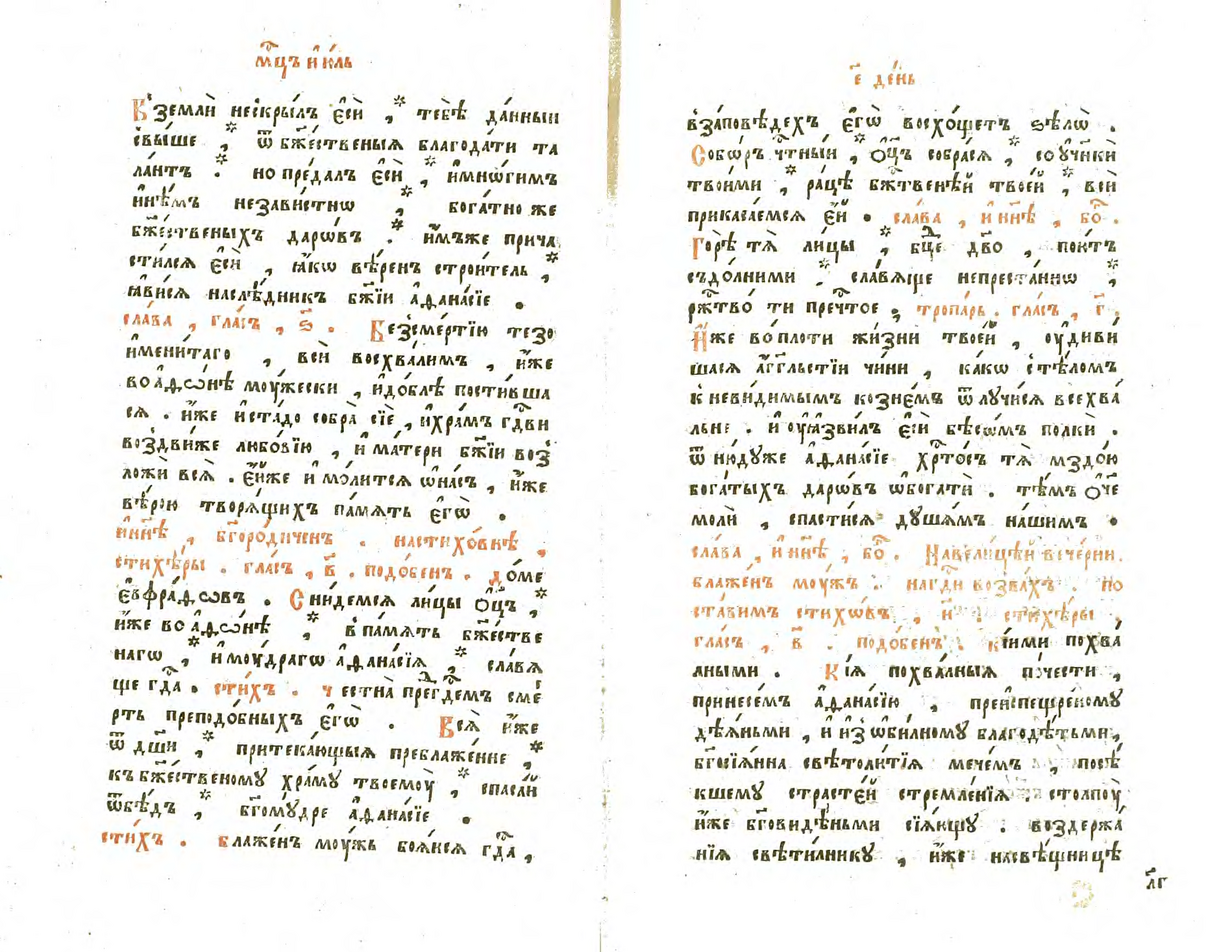 мⷭ҇цъ і҆ю́ль
В̾земли̑ нескры́лъ є҆сѝ , * тебѣ̀ да́нныи
свы́ше , * ѿ бж҃е́ственыѧ благода́ти та
ла́нтъ . * но пре́далъ є҆сѝ , * и҆мнѡ́гимъ
и҆нѣ́мъ неза́вистнѡ , * бога́тно же
бж҃е́ственыхъ дарѡ́въ . * и҆́мъже прича
сти́лсѧ є҆сѝ , ꙗ҆́кѡ вѣ́ренъ строи́тель , *
ꙗ҆ви́сѧ наслѣ́дникъ бж҃їи а҆ѳана́сїе .
сла́ва , гла́съ , ѕ҃ . Безсме́ртїю тезо
имени́таго , всѝ восхва́лимъ , и҆́же
во а҆ѳѡ́нѣ мꙋ́жески , и҆до́блѣ пости́вша
сѧ . и҆́же и҆ста́до собра̀ сїѐ , и҆хра́мъ гдⷭ҇ви
воздви́же любо́вїю , и҆ ма́тери бж҃їи воз
ложѝ всѧ̀ . є҆́йже и҆ мо́литсѧ ѡ҆на́съ , и҆́же
вѣ́рою творѧ́щихъ па́мѧть є҆гѡ̀ .
и҆ нн҃ѣ , бг҃оро́диченъ . настихо́внѣ ,
стихѣ́ры . гла́съ , в҃ . подо́бенъ . до́ме
є҆ѵфра́ѳовъ . Сни́демсѧ ли́цы ѻ҆ц҃ъ , *
и҆́же во а҆ѳѡ́нѣ , * в̾па́мѧть бж҃е́стве
нагѡ , * и҆мꙋ́драгѡ а҆ѳана́сїѧ , * сла́вѧ
ще гдⷭ҇а . сти́хъ . честна̀ преⷣ гдⷭ҇емъ сме́
рть преподо́бныхъ є҆гѡ̀ . Всѧ̑ и҆́же
ѿ дш҃и , * притека́ющыѧ преблаже́нне , *
къ бж҃е́ственомꙋ хра́мꙋ твоемꙋ̀ , * спаса́й
ѿбѣ́дъ , * бг҃омꙋ́дре а҆ѳана́сїе .
сти́хъ . блаже́нъ мꙋ́жъ боѧ́исѧ гдⷭ҇а ,
є҃ де́нь
в̾за́повѣдехъ є҆гѡ̀ восхо́щетъ ѕѣ́лѡ .
Собо́ръ чⷭ҇тны́й , * ѻ҆ц҃ъ собра́сѧ , * со ᲂу҆чн҃ки̑
твои́ми , * ра́цѣ бжⷭ҇твенѣ́й твое́й , * всѝ
прикаса́емсѧ є҆́й . сла́ва , и҆ нн҃ѣ , боⷢ҇ .
Го́рѣ тѧ̀ ли́цы , * бц҃е дв҃о , пою́тъ
съдо́лними * сла́вѧще непреста́ннѡ , *
ржⷭ҇тво̀ ти пречⷭ҇тое . тропа́рь . гла́съ , г҃ .
И҆́же во́ плоти жи́зни твое́й , ᲂу҆диви́
шасѧ а҆́гг҃льстїи чи́ни , ка́кѡ с тѣ́ломъ
к неви́димымъ ко́знемъ ѿлучи́сѧ всехва́
льне . и҆ ᲂу҆ꙗзви́лъ є҆сѝ бѣсѡ́мъ полки̑ .
ѿ ню́дꙋже а҆ѳана́сїе хрⷭ҇то́съ тѧ̀ мздо́ю
бога́тыхъ дарѡ́въ ѡ҆богатѝ . тѣ́мъ ѻ҆́ч҃е
молѝ , спасти́сѧ дꙋша́мъ на́шимъ .
сла́ва , и҆ нн҃ѣ , боⷢ҇ . Навели́цѣй вече́рни .
блаже́нъ мꙋ́жъ . нагдⷭ҇и возва́хъ . по
ста́вимъ стихѡ́въ , и҃ . стихѣ́ры ,
гла́съ , в҃ . подо́бенъ . ки́ими похва́
лными . Кі́ѧ похва́лныѧ по́чести ,
принесе́мъ а҆ѳана́сїю , преи҆спещре́номꙋ
дѣѧ́ньми , и҆ и҆зѡби́лномꙋ благодѣ́тьми ,
бг҃осїѧ́нна свѣтоли́тїѧ мече́мъ , посѣ́
кшемꙋ страсте́й стремле́нїѧ . столпꙋ̀
и҆́же бг҃ови́дѣньми сїѧ́ющꙋ . воздержа́
нїѧ свѣти́лникꙋ , и҆́же насвѣ́щницѣ
л҃г